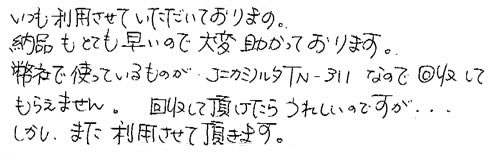 いつも利用させていただいております。
納品もとても早いので大変助かっております。
弊社で使っているものがJニカミノルタTN-311なので回収して
もらえません。 回収して頂けたらうれしいのですが...
しかし、また利用させて頂きます。